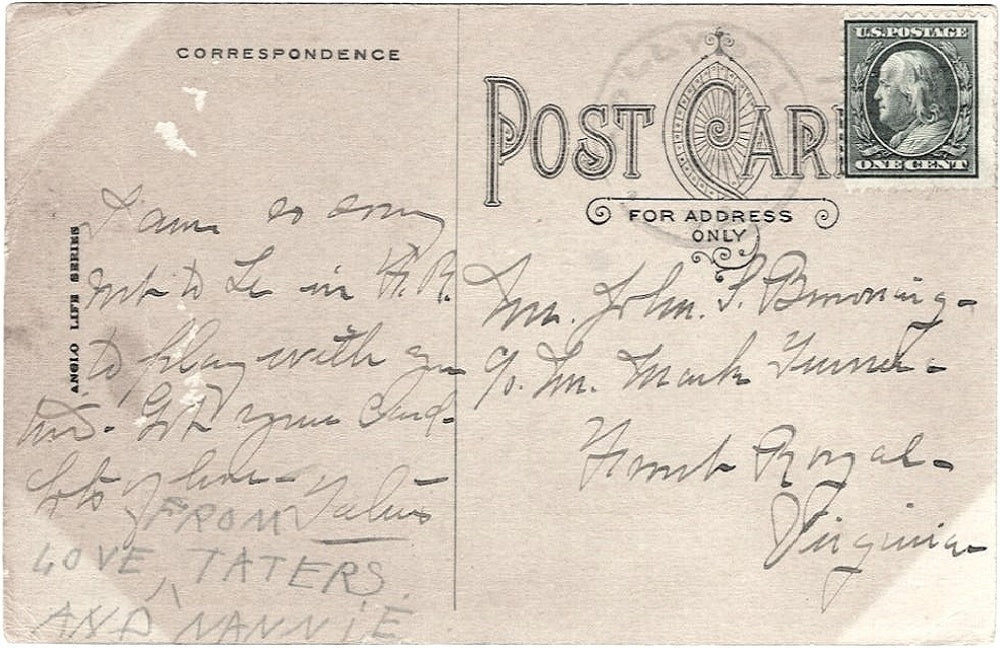 CORRESPONDENCE
POST CARD
FOR ADDRESS
ONLY
U.S. POSTAGE
ONE CENT
ANGLO LIFE SERIES
I am so sorry
not to be in F.R.
to play with you
Got your card.
Lots of love - Taters
FROM
LOVE, TATERS
AND NANNIE
Mr. John S. Browning -
c/o. Mr. Mark Turner -
Front Royal -
Virginia -